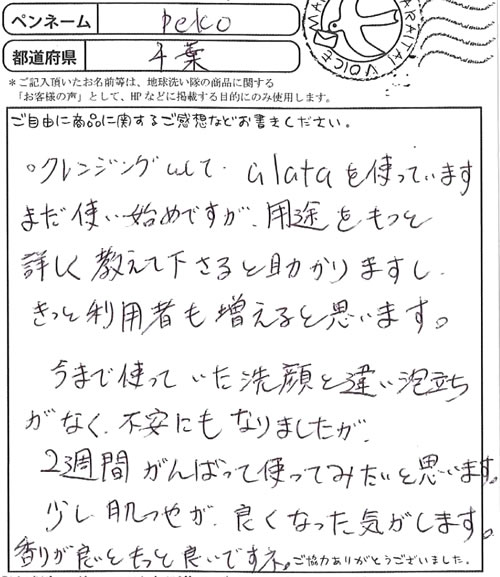 ペンネーム peko
都道府県 千葉
＊ご記入頂いたお名前等は、地球洗い隊の商品に関する
「お客様の声」として、HPなどに掲載する目的にのみ使用します。
ARAITAI VOICE
ご自由に商品に関するご感想などお書きください。
○クレンジングとして alataを使っています
まだ使い始めですが、用途をもっと
詳しく教えて下さると助かりますし、
きっと利用者も増えると思います。
今まで使っていた洗顔と違い泡立ち
がなく、不安にもなりましたが、
2、3週間がんばって使ってみたいと思います。
少し肌つやが、良くなった気がします。
香りが良いともっと良いですネ。
ご協力ありがとうございました。